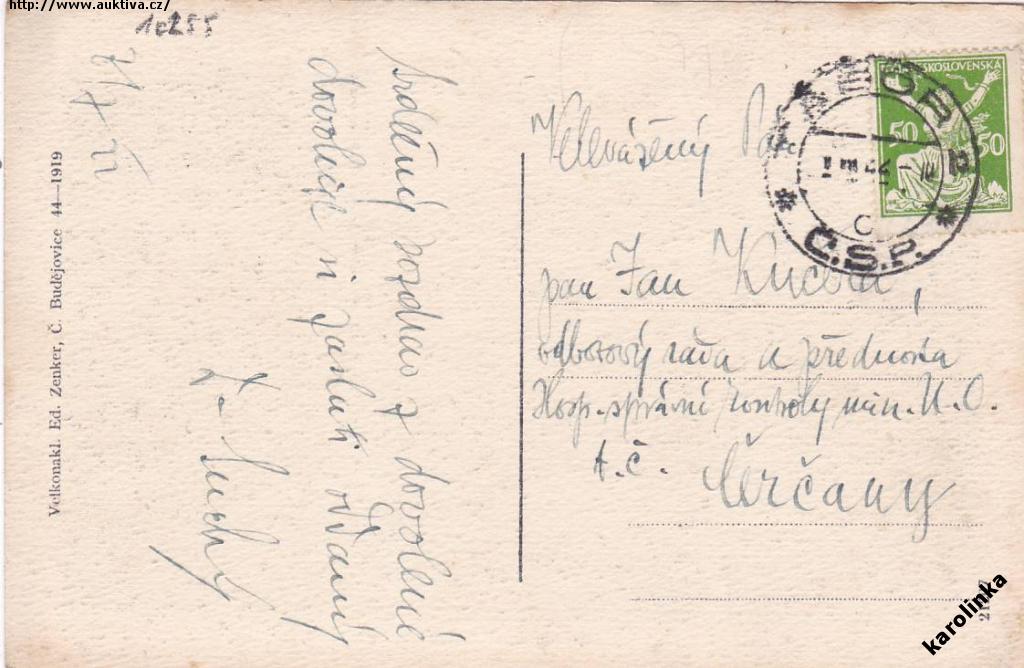 http://www.auktiva.cz/
10255
Srdečný pozdrav z dovolené
dovoluje si zaslati oddaný
Suchý
Velkonakl. Ed. Zenker, Č. Budějovice 44—1919
ČESKOSLOVENSKÁ
50 50
TÁBOR 2
C
Č.S.P.
Velevážený Pan
pan Jan Kučera,
odborový rada a přednosta
Hosp. správní kontroly min. N. O.
t. č.
Čerčany
karolinka